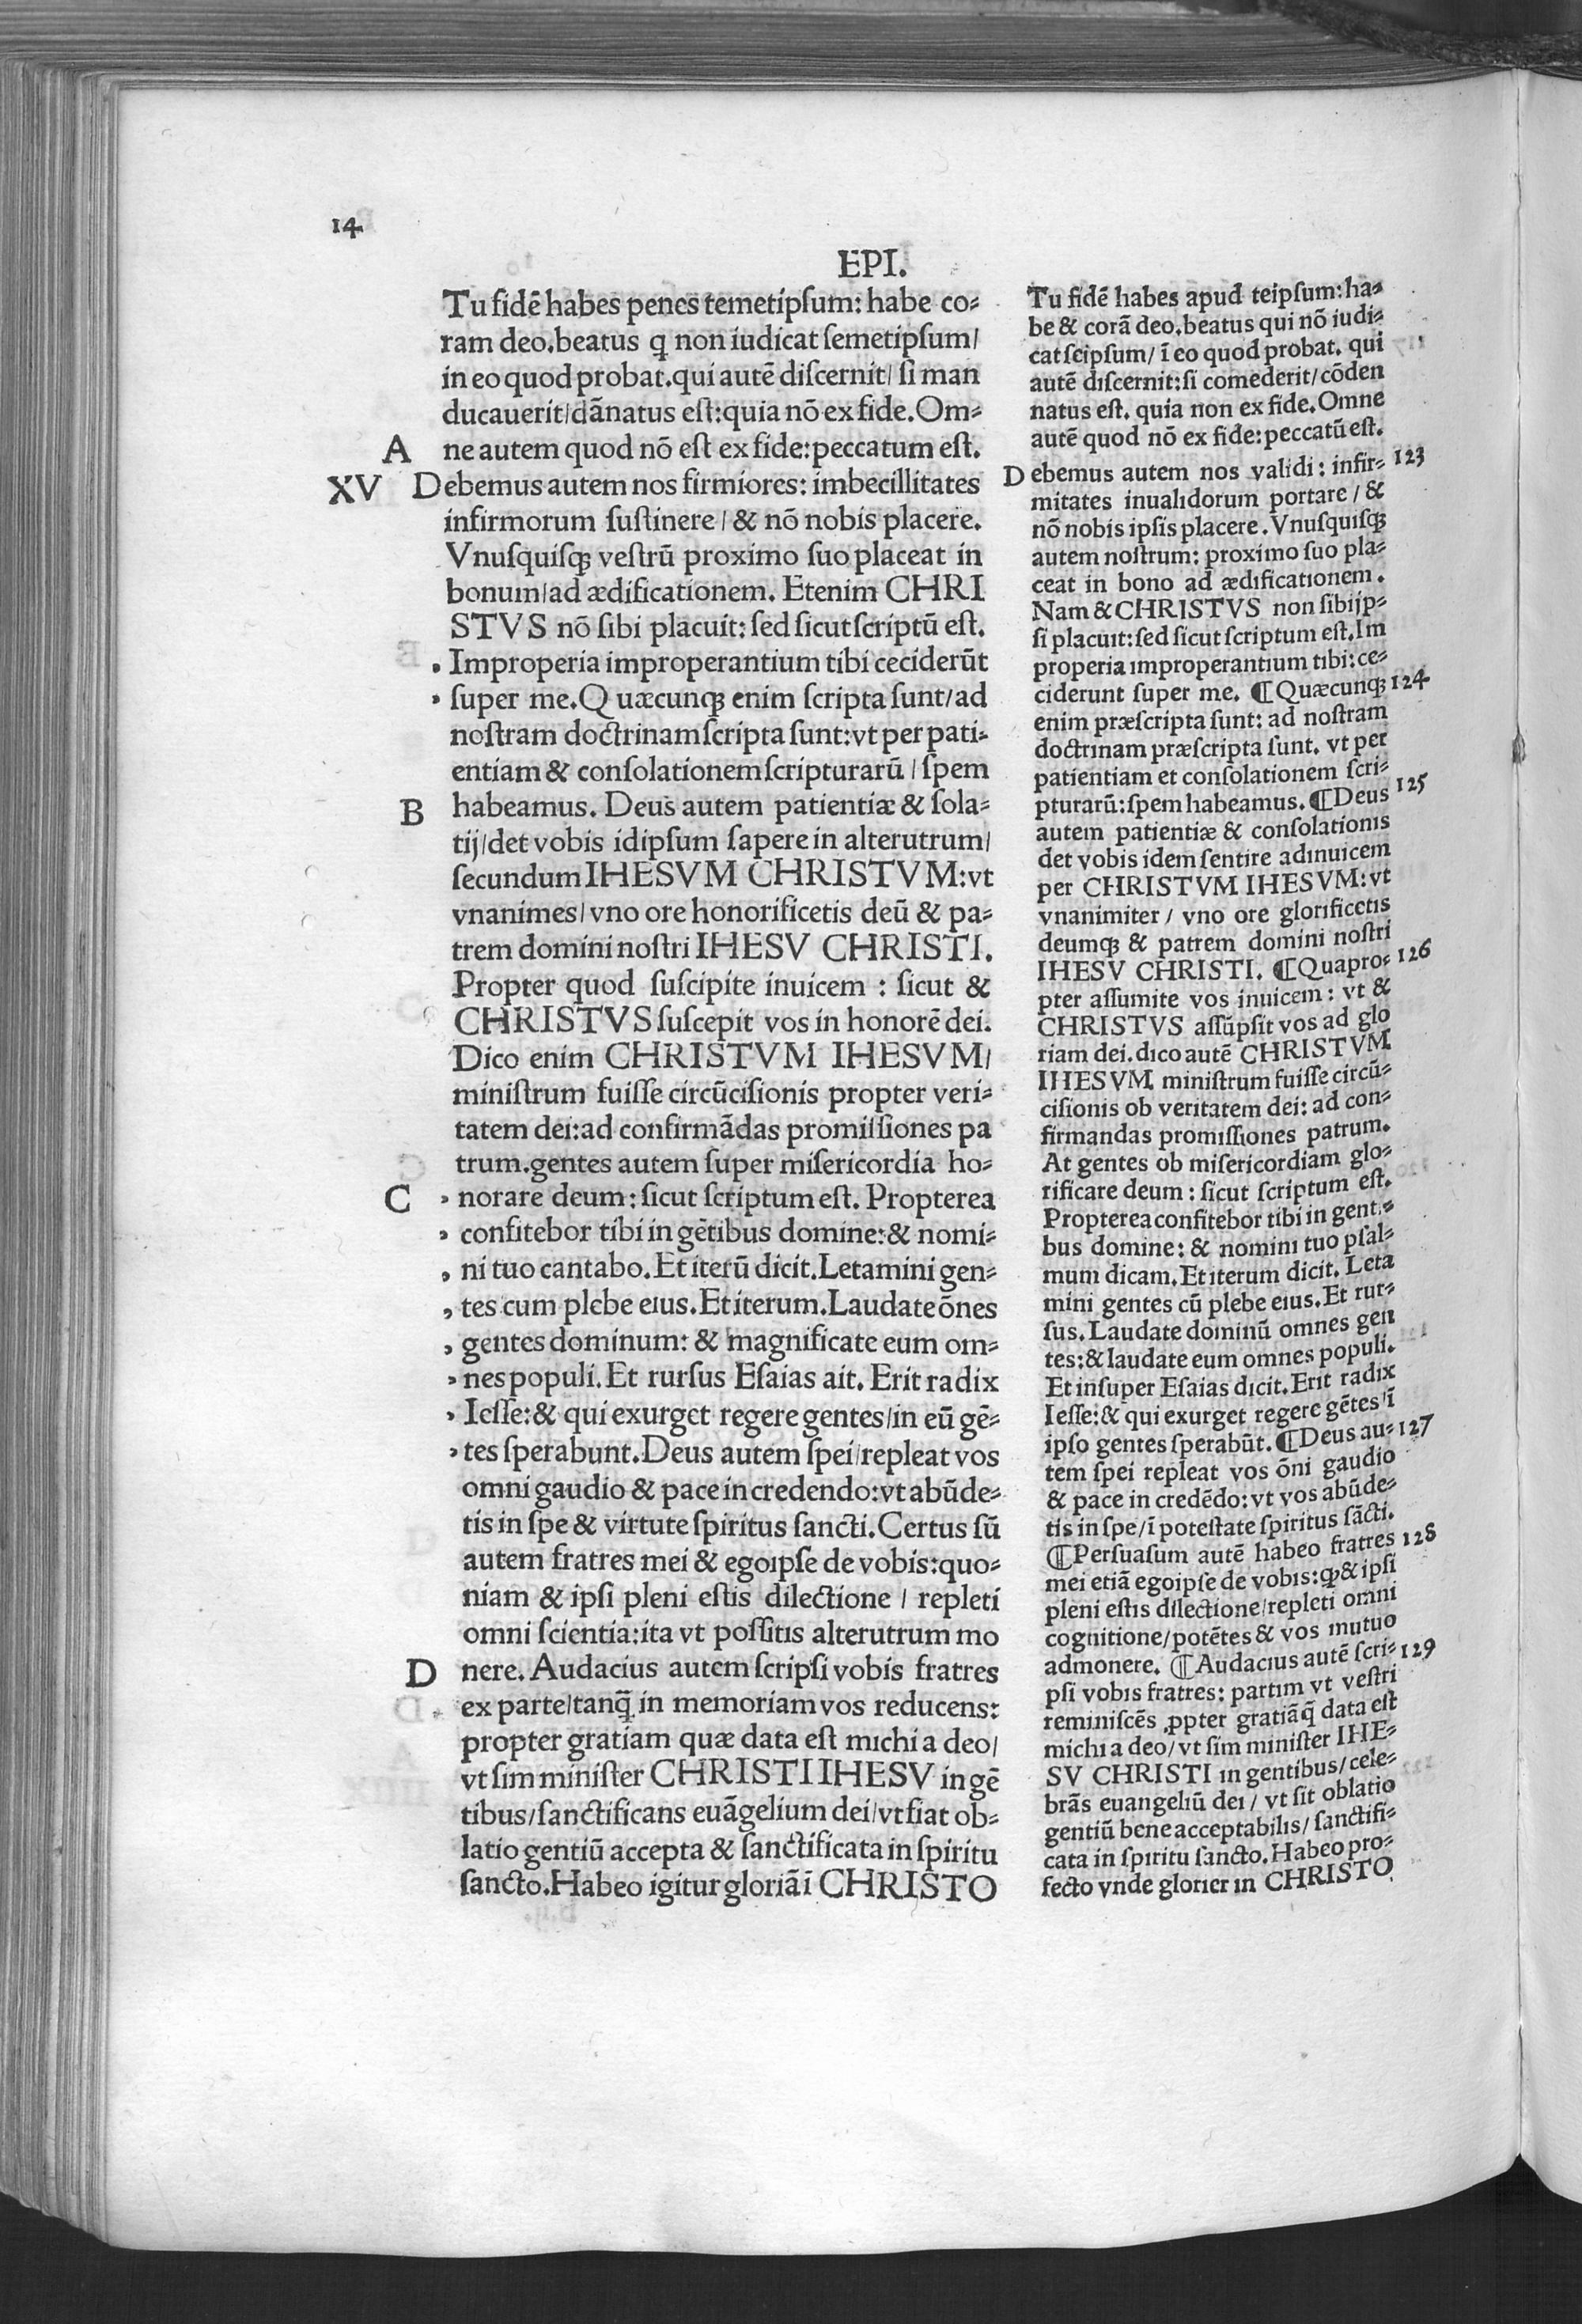 14
EPI.
Tu fidē habes penes temetipſum: habe co-
ram deo.beatus ꝗ non iudicat ſemetipſum/
in eo quod probat.qui autē diſcernit/ ſi man
ducauerit/dānatus eſt:quia nō ex fide.Om-
A ne autem quod nō eſt ex fide:peccatum eſt.
XV Debemus autem nos firmiores: imbecillitates
infirmorum ſuſtinere / & nō nobis placere.
Vnuſquiſqꝫ veſtrū proximo ſuo placeat in
bonum/ad ædificationem. Etenim CHRI
STVS nō ſibi placuit: ſed ſicut ſcriptū eſt.
, Improperia improperantium tibi ceciderūt
, ſuper me.Quæcunqꝫ enim ſcripta ſunt/ad
noſtram doctrinam ſcripta ſunt:vt per pati-
entiam & conſolationem ſcripturarū / ſpem
B habeamus. Deus autem patientiæ & ſola-
tij/det vobis idipſum ſapere in alterutrum/
ſecundum IHESVM CHRISTVM:vt
vnanimes/ vno ore honorificetis deū & pa-
trem domini noſtri IHESV CHRISTI.
Propter quod ſuſcipite inuicem : ſicut &
CHRISTVS ſuſcepit vos in honorē dei.
Dico enim CHRISTVM IHESVM/
miniſtrum fuiſſe circūciſionis propter veri-
tatem dei:ad confirmādas promiſſiones pa
trum.gentes autem ſuper miſericordia ho-
C , norare deum: ſicut ſcriptum eſt. Propterea
, confitebor tibi in gētibus domine:& nomi-
, ni tuo cantabo.Et iterū dicit.Letamini gen-
, tes cum plebe eius.Et iterum.Laudate ōnes
, gentes dominum: & magnificate eum om-
, nes populi. Et rurſus Eſaias ait. Erit radix
, Ieſſe:& qui exurget regere gentes/in eū gē-
, tes ſperabunt.Deus autem ſpei/repleat vos
omni gaudio & pace in credendo:vt abūde-
tis in ſpe & virtute ſpiritus ſancti.Certus ſū
autem fratres mei & egoipſe de vobis:quo-
niam & ipſi pleni eſtis dilectione / repleti
omni ſcientia:ita vt poſſitis alterutrum mo
D nere. Audacius autem ſcripſi vobis fratres
ex parte/tanꝗ̄ in memoriam vos reducens:
propter gratiam quæ data eſt michi a deo/
vt ſim miniſter CHRISTI IHESV in gē
tibus/ſanctificans euāgelium dei/vt fiat ob-
latio gentiū accepta & ſanctificata in ſpiritu
ſancto.Habeo igitur gloriā ī CHRISTO
Tu fidē habes apud teipſum: ha-
be & corā deo.beatus qui nō iudi-
cat ſeipſum/ ī eo quod probat. qui
autē diſcernit:ſi comederit/cōden
natus eſt. quia non ex fide.Omne
autē quod nō ex fide:peccatū eſt.
Debemus autem nos validi: infir- 123
mitates inualidorum portare / &
nō nobis ipſis placere.Vnuſquiſqꝫ
autem noſtrum: proximo ſuo pla-
ceat in bono ad ædificationem.
Nam & CHRISTVS non ſibijp-
ſi placuit:ſed ſicut ſcriptum eſt.Im
properia improperantium tibi:ce-
ciderunt ſuper me. ¶Quæcunqꝫ 124
enim præſcripta ſunt: ad noſtram
doctrinam præſcripta ſunt. vt per
patientiam et conſolationem ſcri-
pturarū:ſpem habeamus. ¶Deus 125
autem patientiæ & conſolationis
det vobis idem ſentire adinuicem
per CHRISTVM IHESVM:vt
vnanimiter / vno ore glorificetis
deumqꝫ & patrem domini noſtri
IHESV CHRISTI. ¶Quapro- 126
pter aſſumite vos inuicem: vt &
CHRISTVS aſſūpſit vos ad glo
riam dei.dico autē CHRISTVM
IHESVM miniſtrum fuiſſe circū-
ciſionis ob veritatem dei: ad con-
firmandas promiſſiones patrum.
At gentes ob miſericordiam glo-
rificare deum : ſicut ſcriptum eſt.
Propterea confitebor tibi in genti-
bus domine: & nomini tuo pſal-
mum dicam.Et iterum dicit. Leta
mini gentes cū plebe eius.Et rur-
ſus.Laudate dominū omnes gen
tes:& laudate eum omnes populi.
Et inſuper Eſaias dicit.Erit radix
Ieſſe:& qui exurget regere gētes/ī
ipſo gentes ſperabūt. ¶Deus au- 127
tem ſpei repleat vos ōni gaudio
& pace in credēdo:vt vos abūde-
tis in ſpe/ī poteſtate ſpiritus ſācti.
¶Perſuaſum autē habeo fratres 128
mei etiā egoipſe de vobis:ꝙ & ipſi
pleni eſtis dilectione/repleti omni
cognitione/potētes & vos mutuo
admonere. ¶Audacius autē ſcri- 129
pſi vobis fratres: partim vt veſtri
reminiſcēs ꝓpter gratiā ꝗ̄ data eſt
michi a deo/vt ſim miniſter IHE-
SV CHRISTI in gentibus/cele-
brās euangeliū dei/ vt ſit oblatio
gentiū bene acceptabilis/ſanctifi-
cata in ſpiritu ſancto.Habeo pro-
fecto vnde glorier in CHRISTO